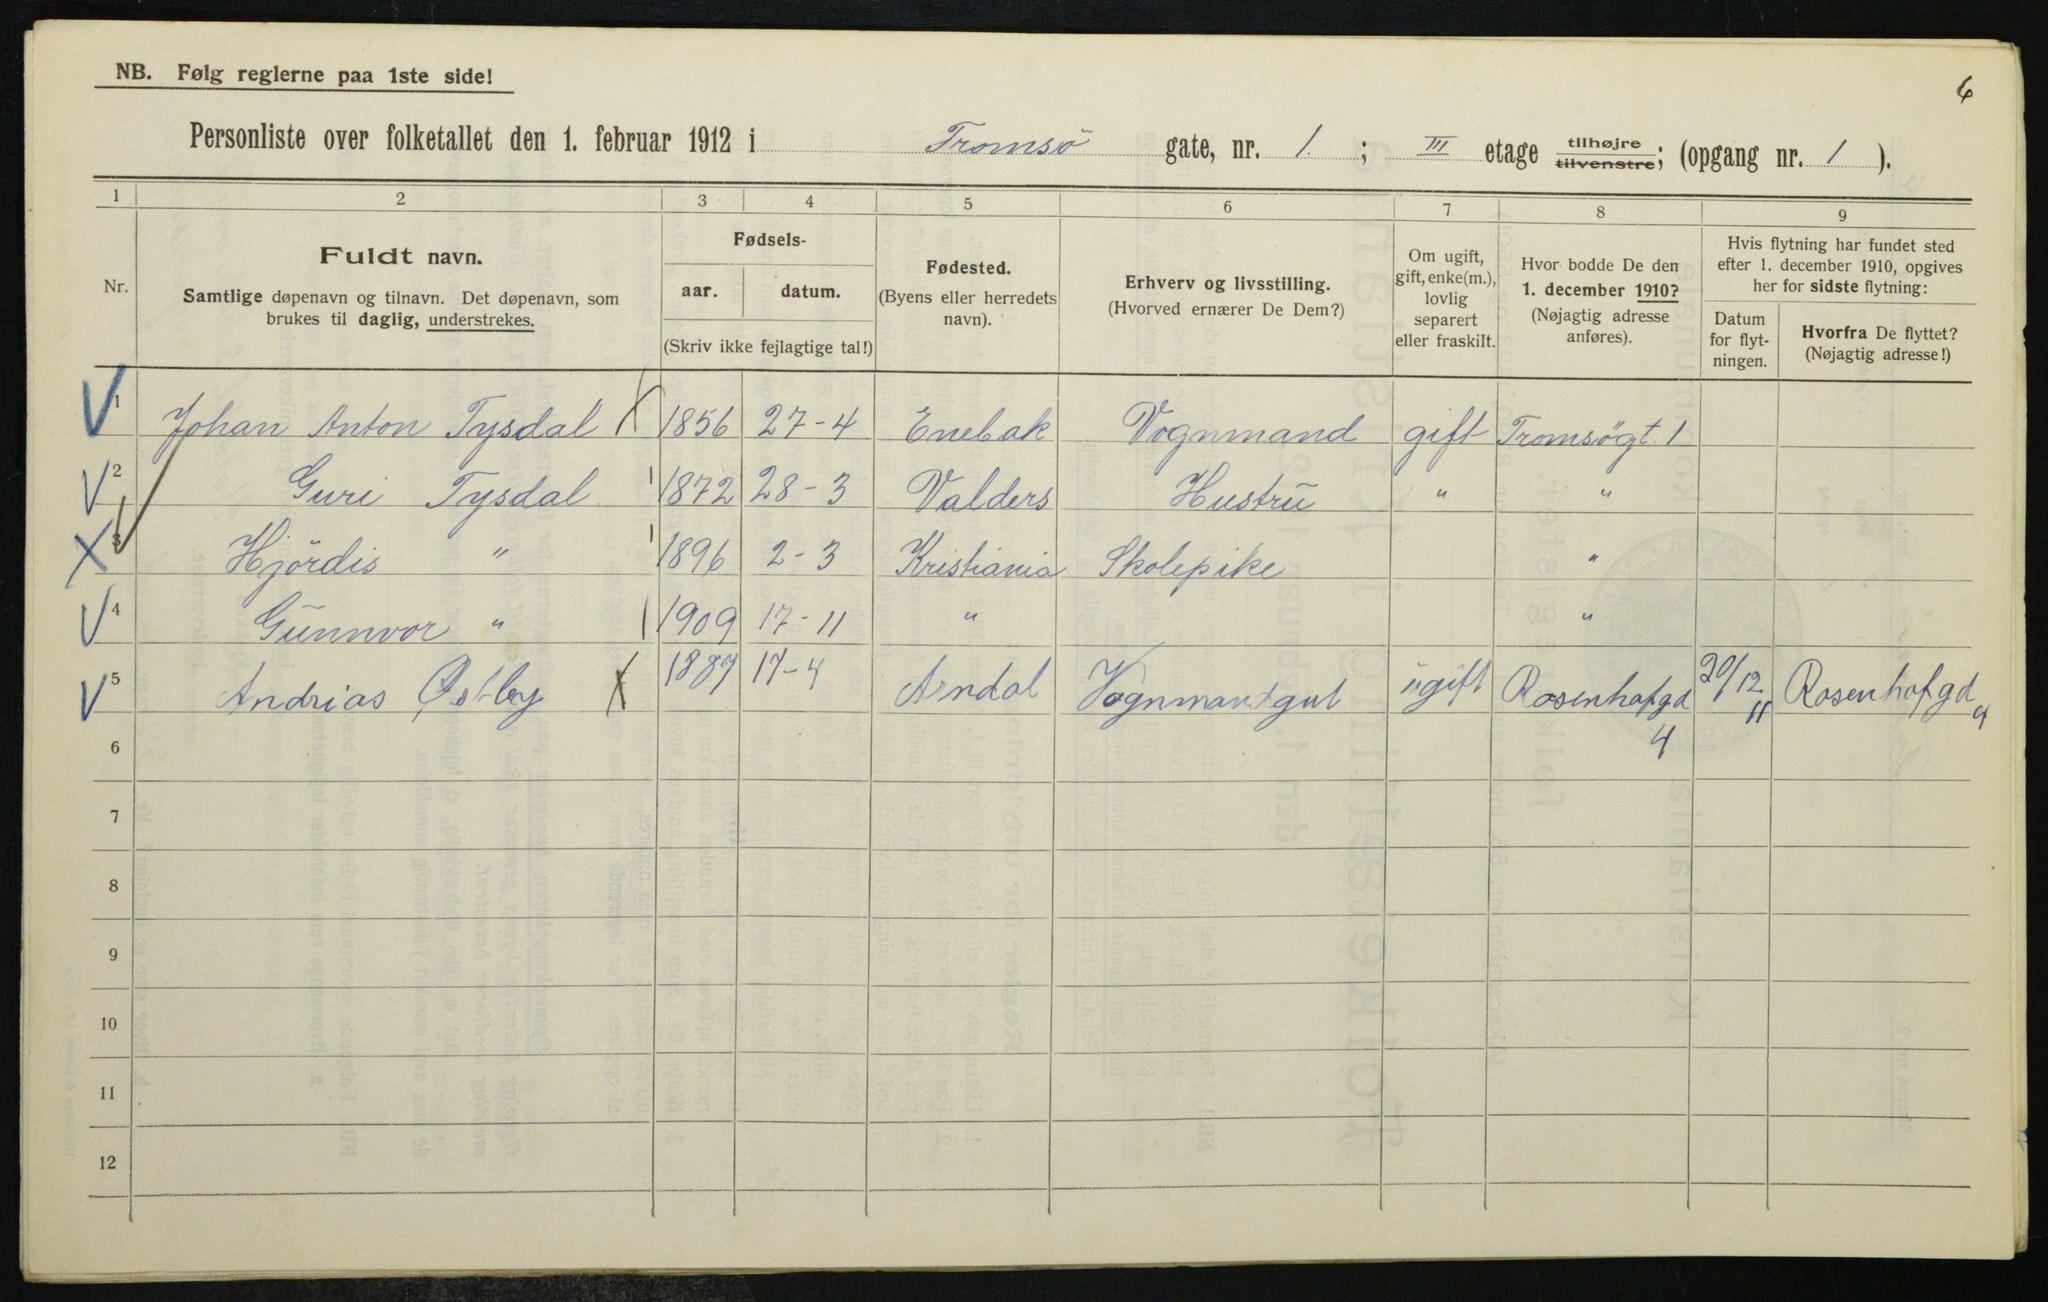 6
NB. Følg reglerne paa 1ste side!
Personliste over folketallet den 1. februar 1912 i Tromsö gate, nr. 1. ; III etage tilhøjre tilvenstre; (opgang nr. 1 ).
1 2 3 4 5 6 7 8 9
Nr.
Fuldt navn.
Samtlige døpenavn og tilnavn. Det døpenavn, som
brukes til daglig, understrekes.
Fødsels-
aar. datum.
(Skriv ikke fejlagtige tal!)
Fødested.
(Byens eller herredets
navn).
Erhverv og livsstilling.
(Hvorved ernærer De Dem?)
Om ugift,
gift, enke(m.),
lovlig
separert
eller fraskilt.
Hvor bodde De den
1. december 1910?
(Nøjagtig adresse
anføres).
Hvis flytning har fundet sted
efter 1. december 1910, opgives
her for sidste flytning:
Datum
for flyt-
ningen.
Hvorfra De flyttet?
(Nøjagtig adresse!)
1 Johan Anton Tysdal 1856 27-4 Enebak Vognmand gift Tromsøgt. 1
2 Guri Tysdal 1872 28-3 Valders Hustru " "
3 Hjördis " 1896 2-3 Kristiania Skolepike "
4 Gunnvor " 1909 17-11 " "
5 Andrias Østby 1887 17-4 Arndal Vognmandgut ugift Rosenhofgd 4 30/12 11 Rosenhofgd 4
6
7
8
9
10
11
12